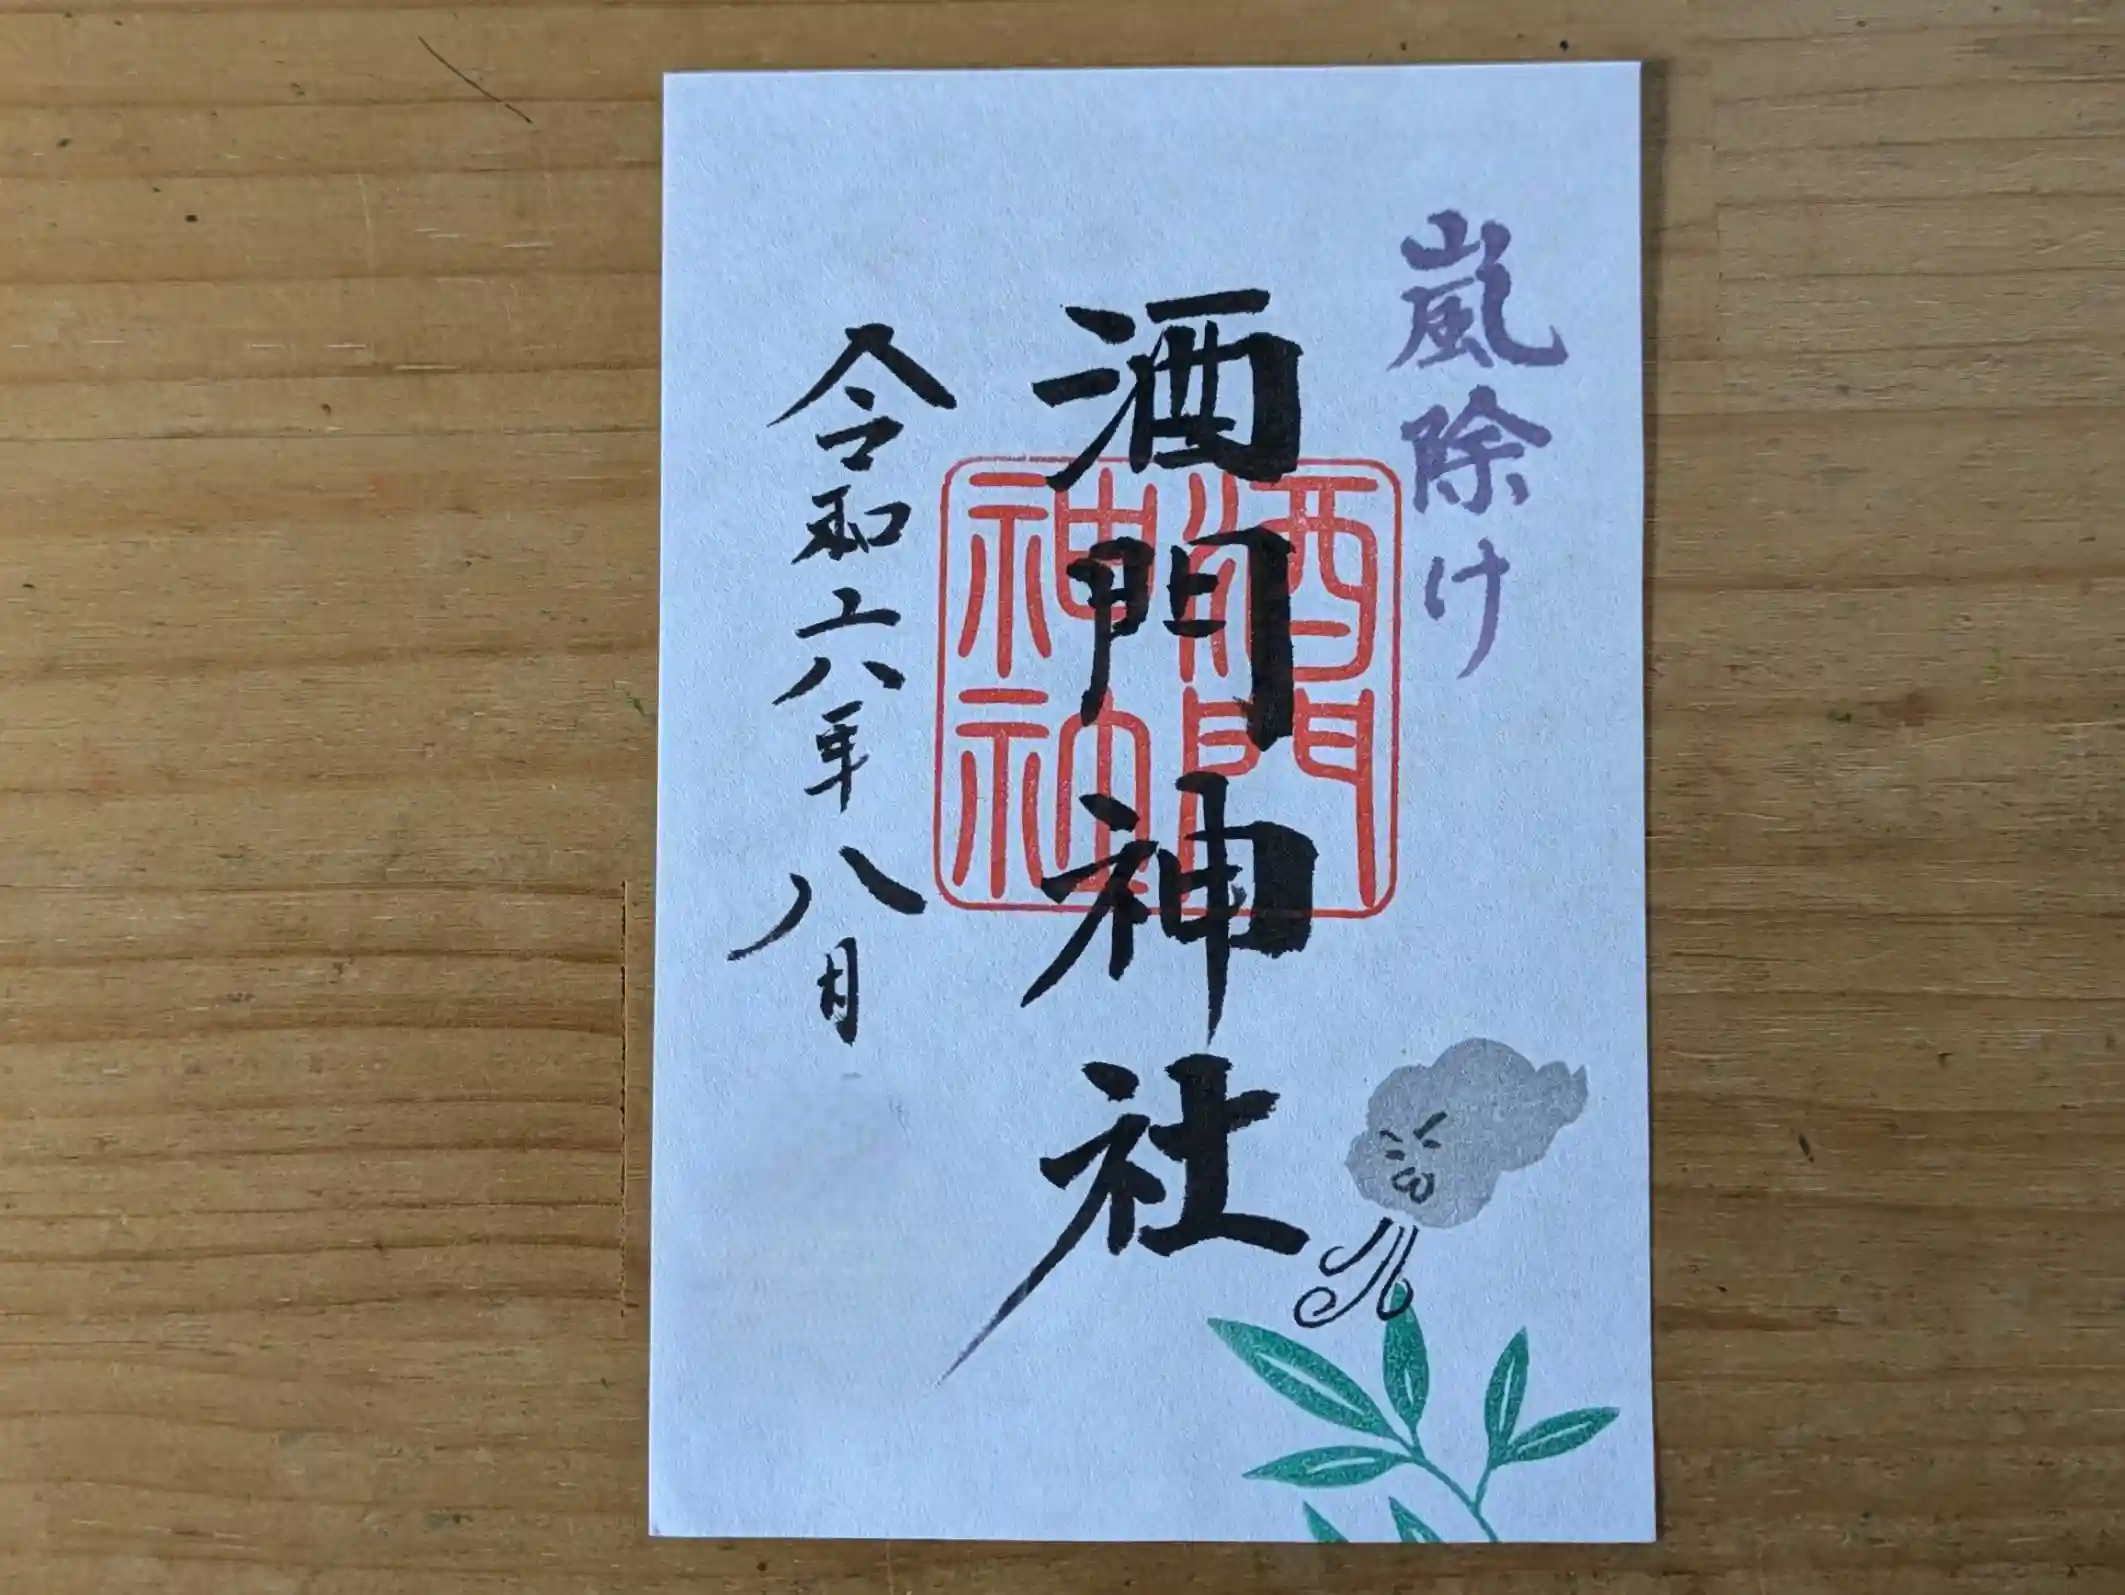 嵐除け
酒門神社
酒門
神社
令和六年八月